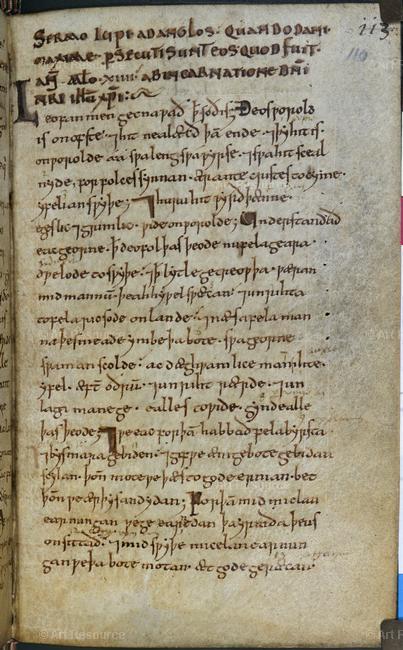 SERMO LUPI AD ANGLOS· QUANDO DANI
MAXIME PERSECUTI SUNT EOS QUOD FUIT·
AÑ· MLO· XIIII· AB INCARNATIONE DÑI
NRI IHU XPI:
Leofan men gecnaƿað þ̄ soð is; Ðeos ƿorold
is on ofste· ⁊ hit nealæcð þā ende· ⁊ þy hit is·
on ƿorolde aa sƿa leng sƿa ƿyrse· ⁊ sƿa hit sceal
nyde, for folces synnan· ær antecristes tocyme·
yfelian sƿyþe; ⁊ huru hit ƿyrð þænne·
egeslic ⁊ grimlic· ƿide on ƿorolde; Understandað
eac georne· þ̄ deofol þas þeode nu fela geara·
dƿelode to sƿyþe· ⁊ þ̄ lytle getreoƿþa· ƿæran
mid mannū· þeah hy ƿel spæcan· ⁊ unrihta
to fela ricsode on lande· ⁊ næs a fela man
na þe smeade ymbe þa bote· sƿa georne
sƿa man scolde· ac dæghƿamlice man ihte·
yfel· æft̄ oðrū· ⁊ unriht rærde· ⁊ un
laga manege· ealles to ƿide· gynd ealle
þas þeode; ⁊ ƿe eac forþā habbað fela byrsta
⁊ bysmara gebiden· ⁊ gif ƿe ænige bote gebidan
scylan· þoñ mote ƿe þæs to gode earnian· bet
þoñ ƿe ær þysan dydan; Forþā mid miclan
earnungan ƿe geearnedan þa yrmða þe us
onsittað· ⁊ mid sƿyþe micelan earnun
gan ƿe þa bote motan· æt gode geræcan·
113
110
© Art Resource